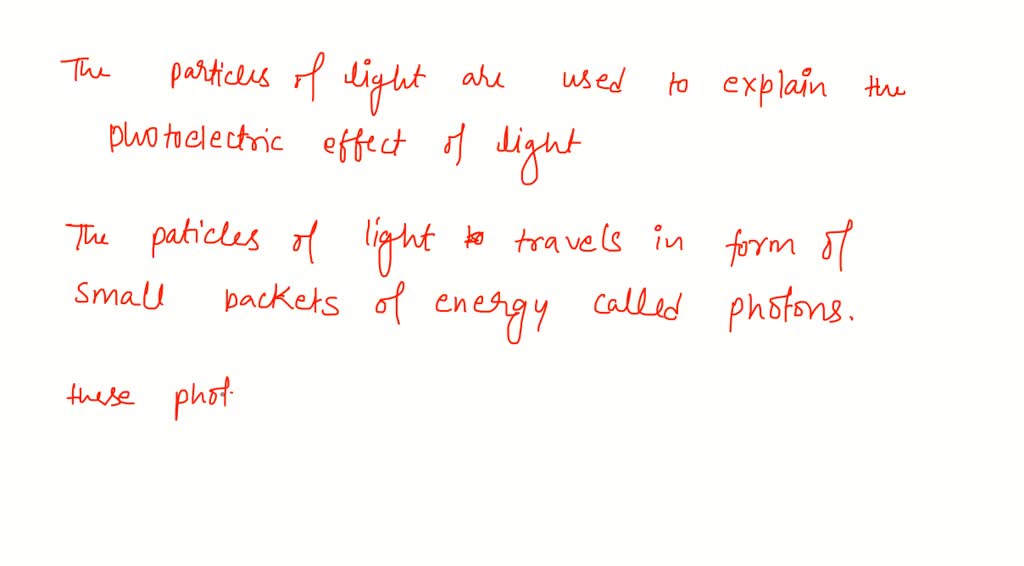 The particles of light are used to explain the
photoelectric effect of light
The paticles of light to travels in form of
small packets of energy called photons.
these phot